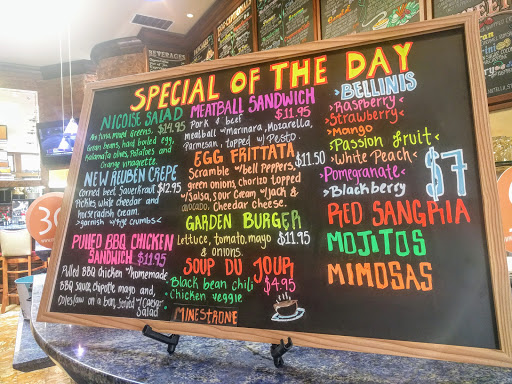 SPECIAL OF THE DAY
NICOISE SALAD
$14.95
Ahi Tuna, Mixed Greens,
Green beans, hard boiled egg,
Kalamata olives, Potatoes and
Orange vinagrette.
NEW REUBEN CREPE
Corned beef, Saverkraut $12.95
Pickles, white cheedar and
horseradish cream.
~garnish w/rye crumbs~
PULLED BBQ CHICKEN
SANDWICH $11.95
Pulled BBQ chicken "Homemade
BBQ sauce, chipotle mayo and,
on a bun, served w/Caesar
Salad
MEATBALL SANDWICH
Pork & beef $11.95
meatball w/marinara, Mozarella,
Parmesan, topped w/Pesto.
EGG FRITTATA
$11.50
Scramble w/bell Peppers,
green onions, chorizo topped
w/Salsa, Sour Cream & Jack &
avocado. Cheedar Cheese.
GARDEN BURGER
Lettuce, tomato, mayo $11.95
& onions.
SOUP DU JOUR
•Black bean chili $4.95
•Chicken veggie
MINESTRONE
BELLINIS
>Raspberry<
>Strawberry<
>Mango
>Passion fruit<
>White Peach<
>Pomegranate<
>Blackberry
$7
RED SANGRIA
MOJITOS
MIMOSAS
BEVERAGES
30